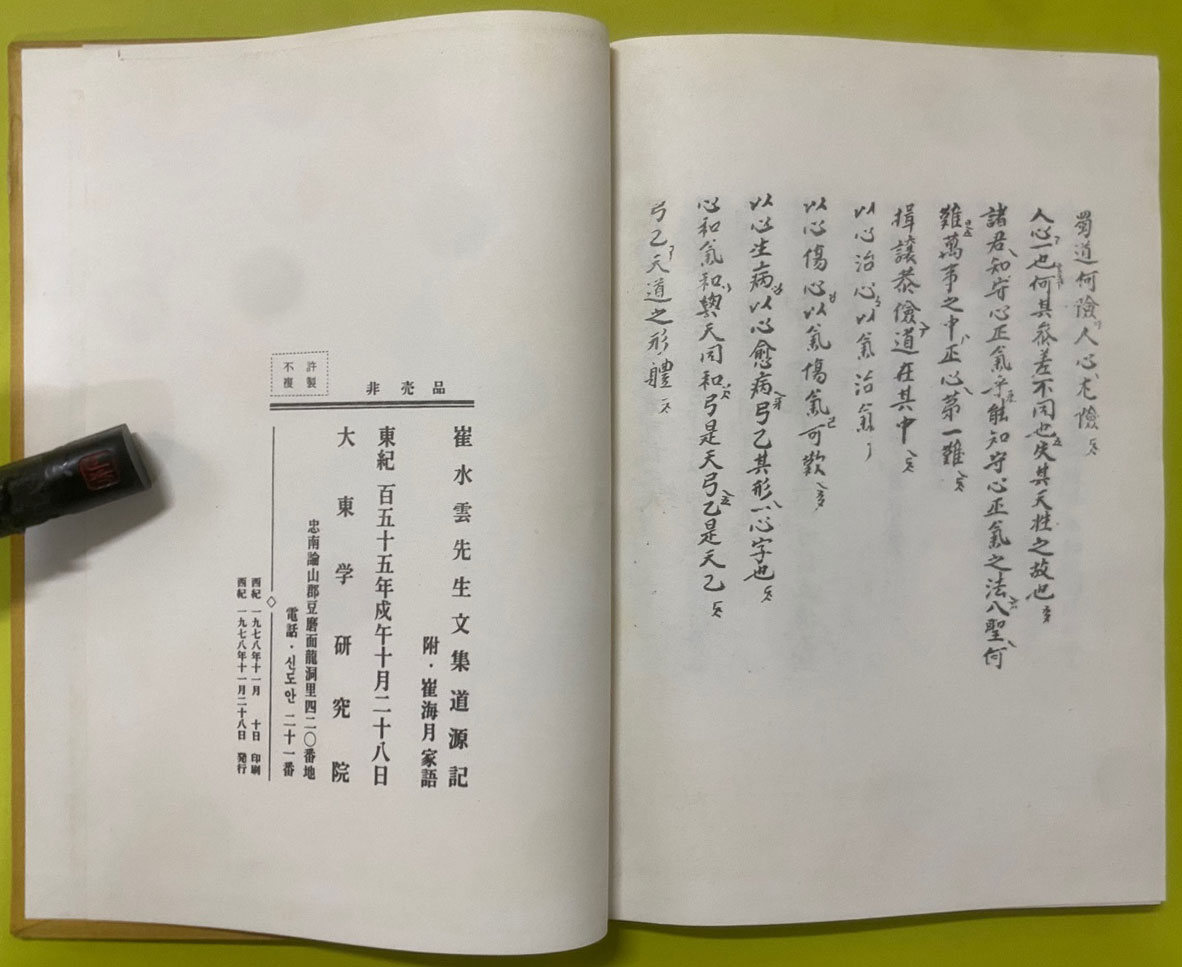 蜀道何險人心尤險
人心一也何其參差不同也失其天性之故也
諸君知守心正氣乎能知守心正氣之法八聖何
難萬事之中正心第一難
揖讓恭儉道在其中
以心治心以氣治氣
以心傷心以氣傷氣可歎
以心生病以心愈病弓乙其形一心字也
心和氣和與天同和弓是天弓乙是天乙
弓乙天道之形體
非売品
崔水雲先生文集道源記
附·崔海月家語
東紀 百五十五年戊午十月二十八日
大東学研究院
忠南論山郡豆磨面龍洞里四二〇番地
電話·신도안 二十一番
西紀 一九七八年十一月 十日 印刷
西紀 一九七八年十一月二十八日 発行
許製
不複